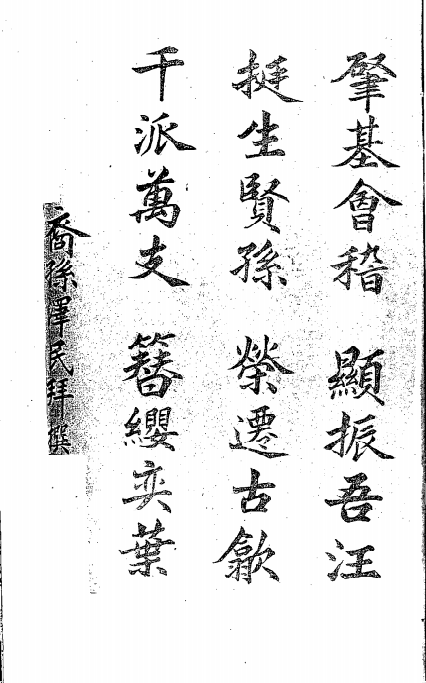 肇基會稽　顯振吾汪
挺生賢孫　榮遷古歙
千派萬支　簪纓奕葉
裔孫澤民拜撰